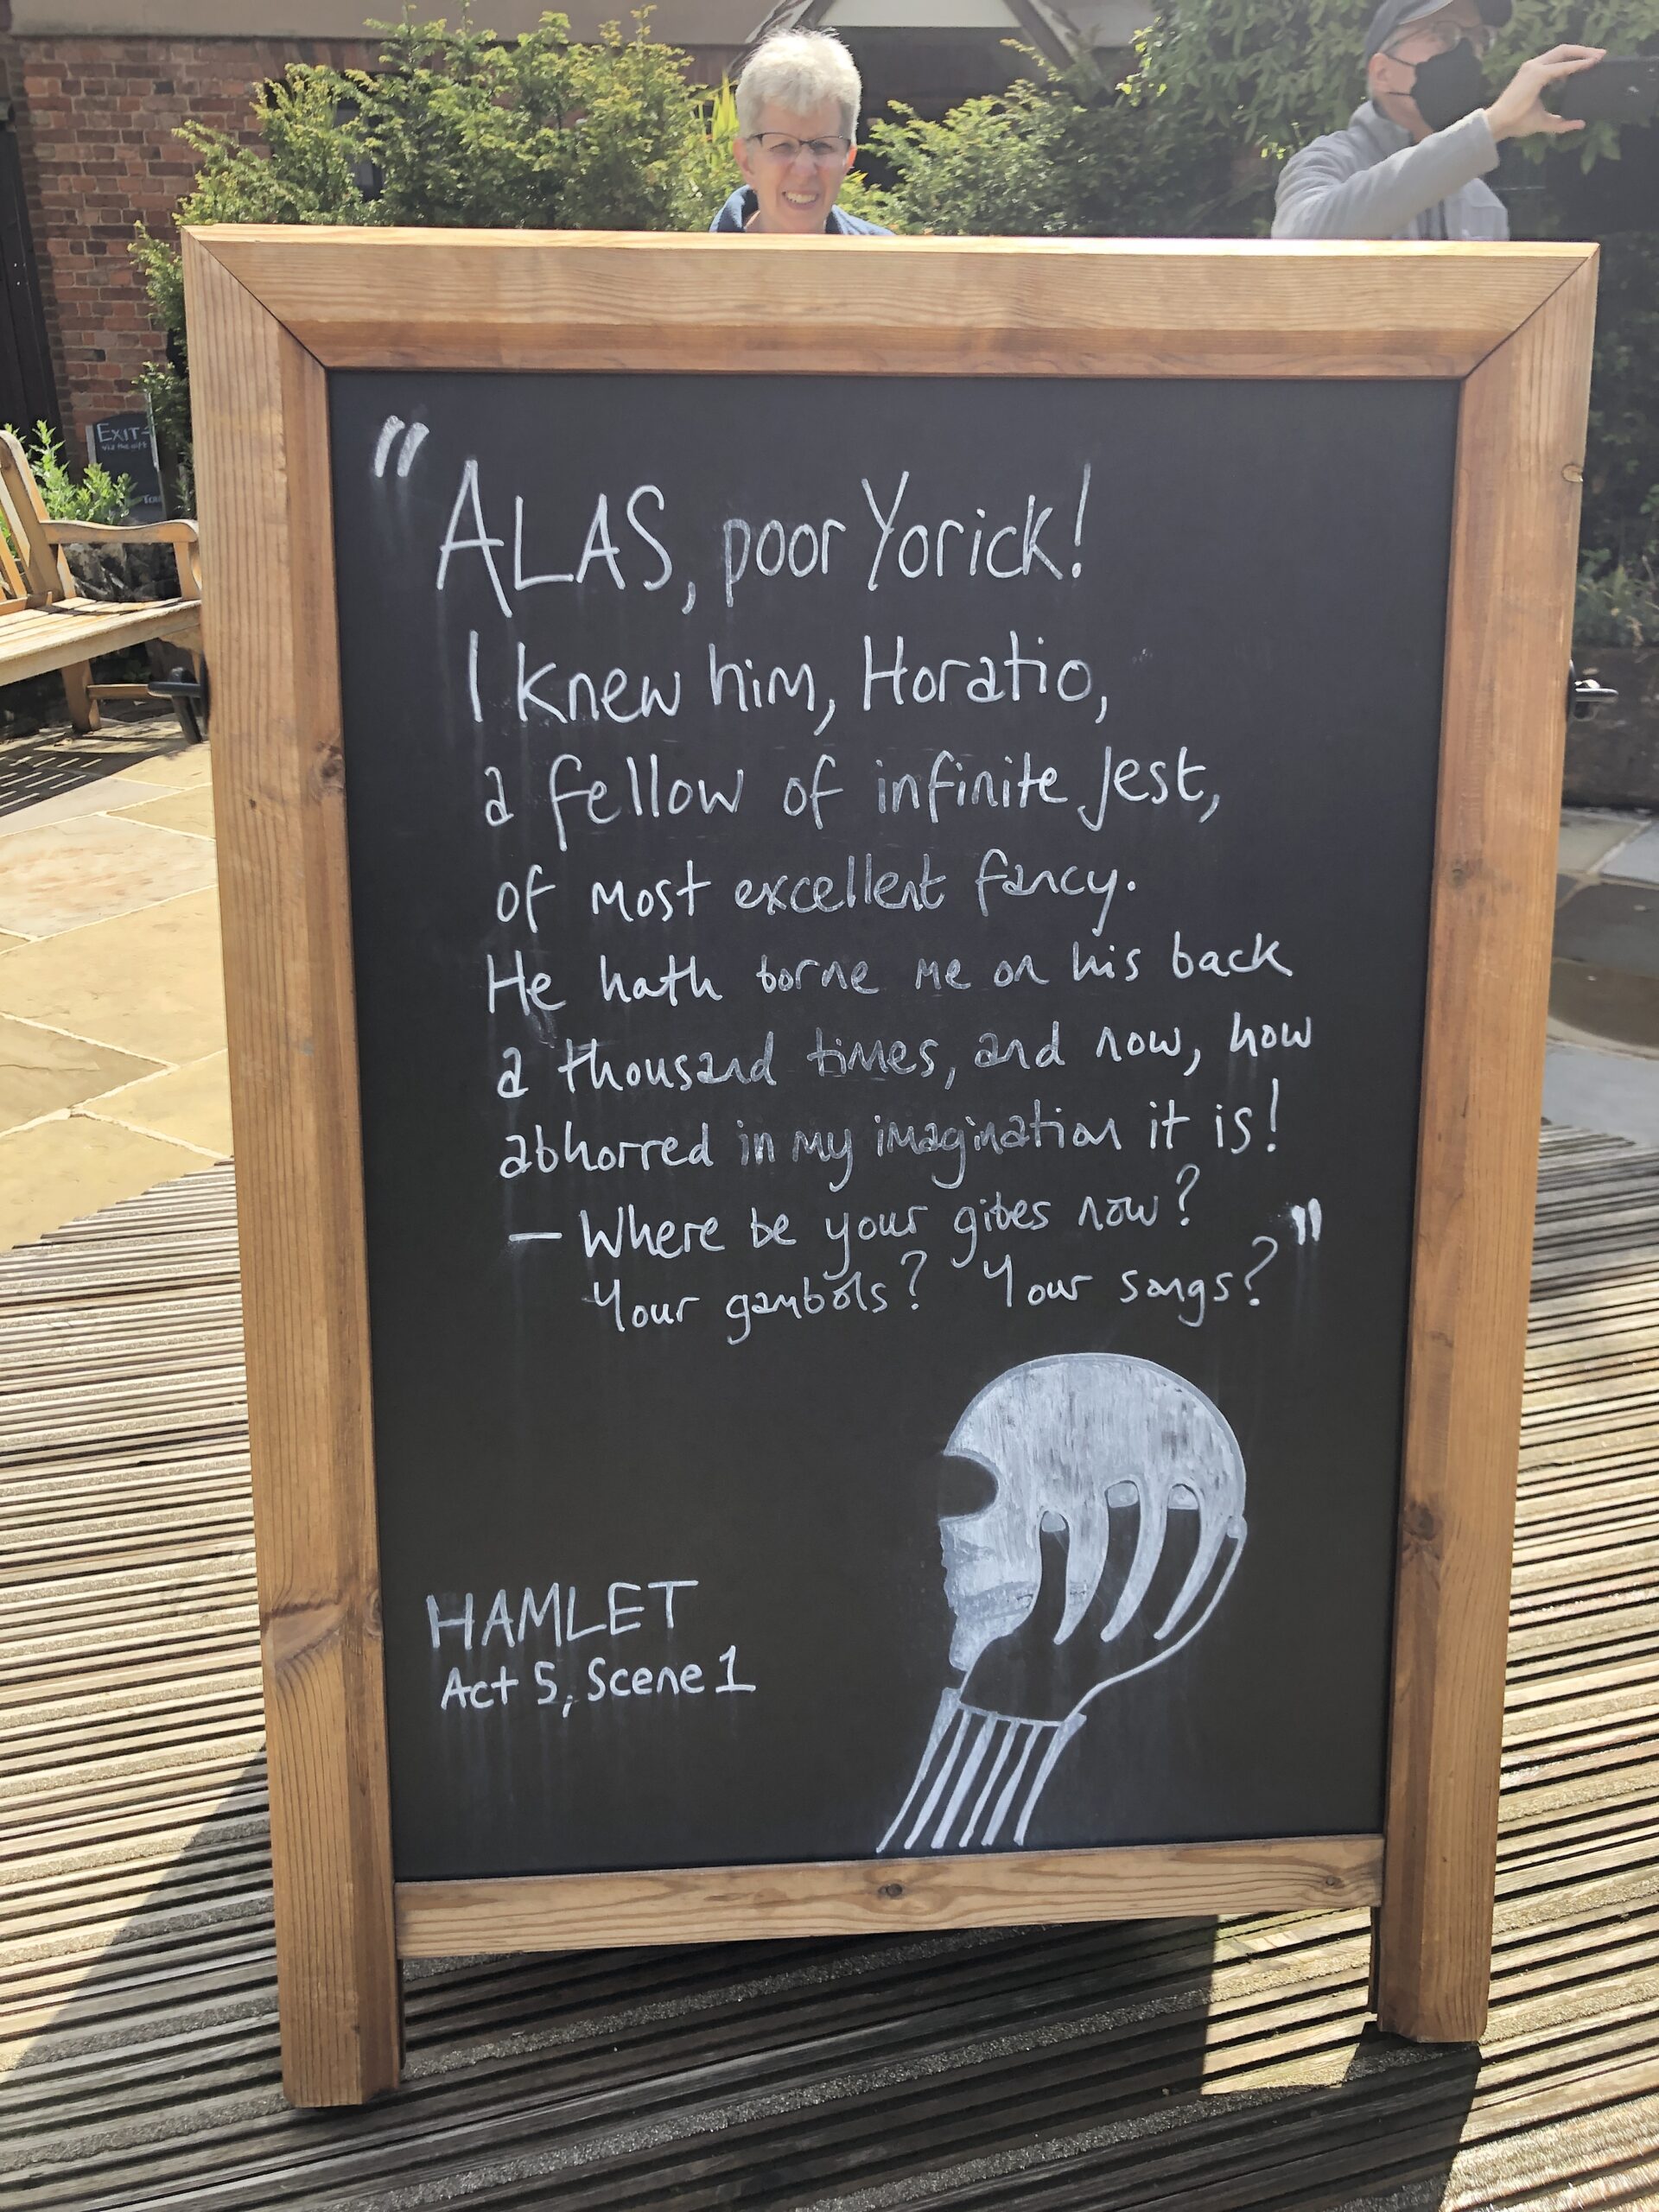 EXIT
"ALAS, poor Yorick!
I knew him, Horatio,
a fellow of infinite Jest,
of most excellent fancy.
He hath borne me on his back
a thousand times, and now, how
abhorred in my imagination it is!
— Where be your gibes now?
Your gambols? Your songs?"
HAMLET
Act 5, Scene 1